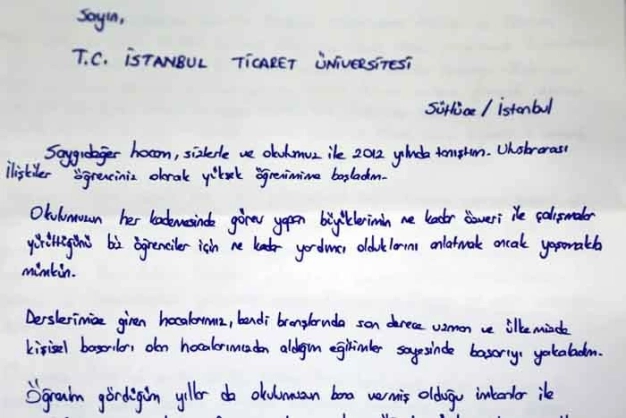 Sayın,
T.C. İSTANBUL TİCARET ÜNİVERSİTESİ
Sütlüce / İstanbul
Saygıdağer hocam, sizlerle ve okulumuz ile 2012 yılında tanıştım. Uluslararası
İlişkiler öğrenciniz olarak yüksek öğrenimime başladım.
Okulumuzun her kademesinde görev yapan büyüklerimin ne kadar özveri ile çalışmalar
yürüttüğünü biz öğrenciler için ne kadar yardımcı olduklarını anlatmak ancak yaşamakla
mümkün.
Derslerimize giren hocalarımız, kendi branşlarında son derece uzman ve ülkemizde
kişisel başarıları olan hocalarımızdan aldığım eğitimler sayesinde başarıyı yakaladım.
Öğrenim gördüğüm yıllar da okulumuzun bana vermiş olduğu imkanlar ile